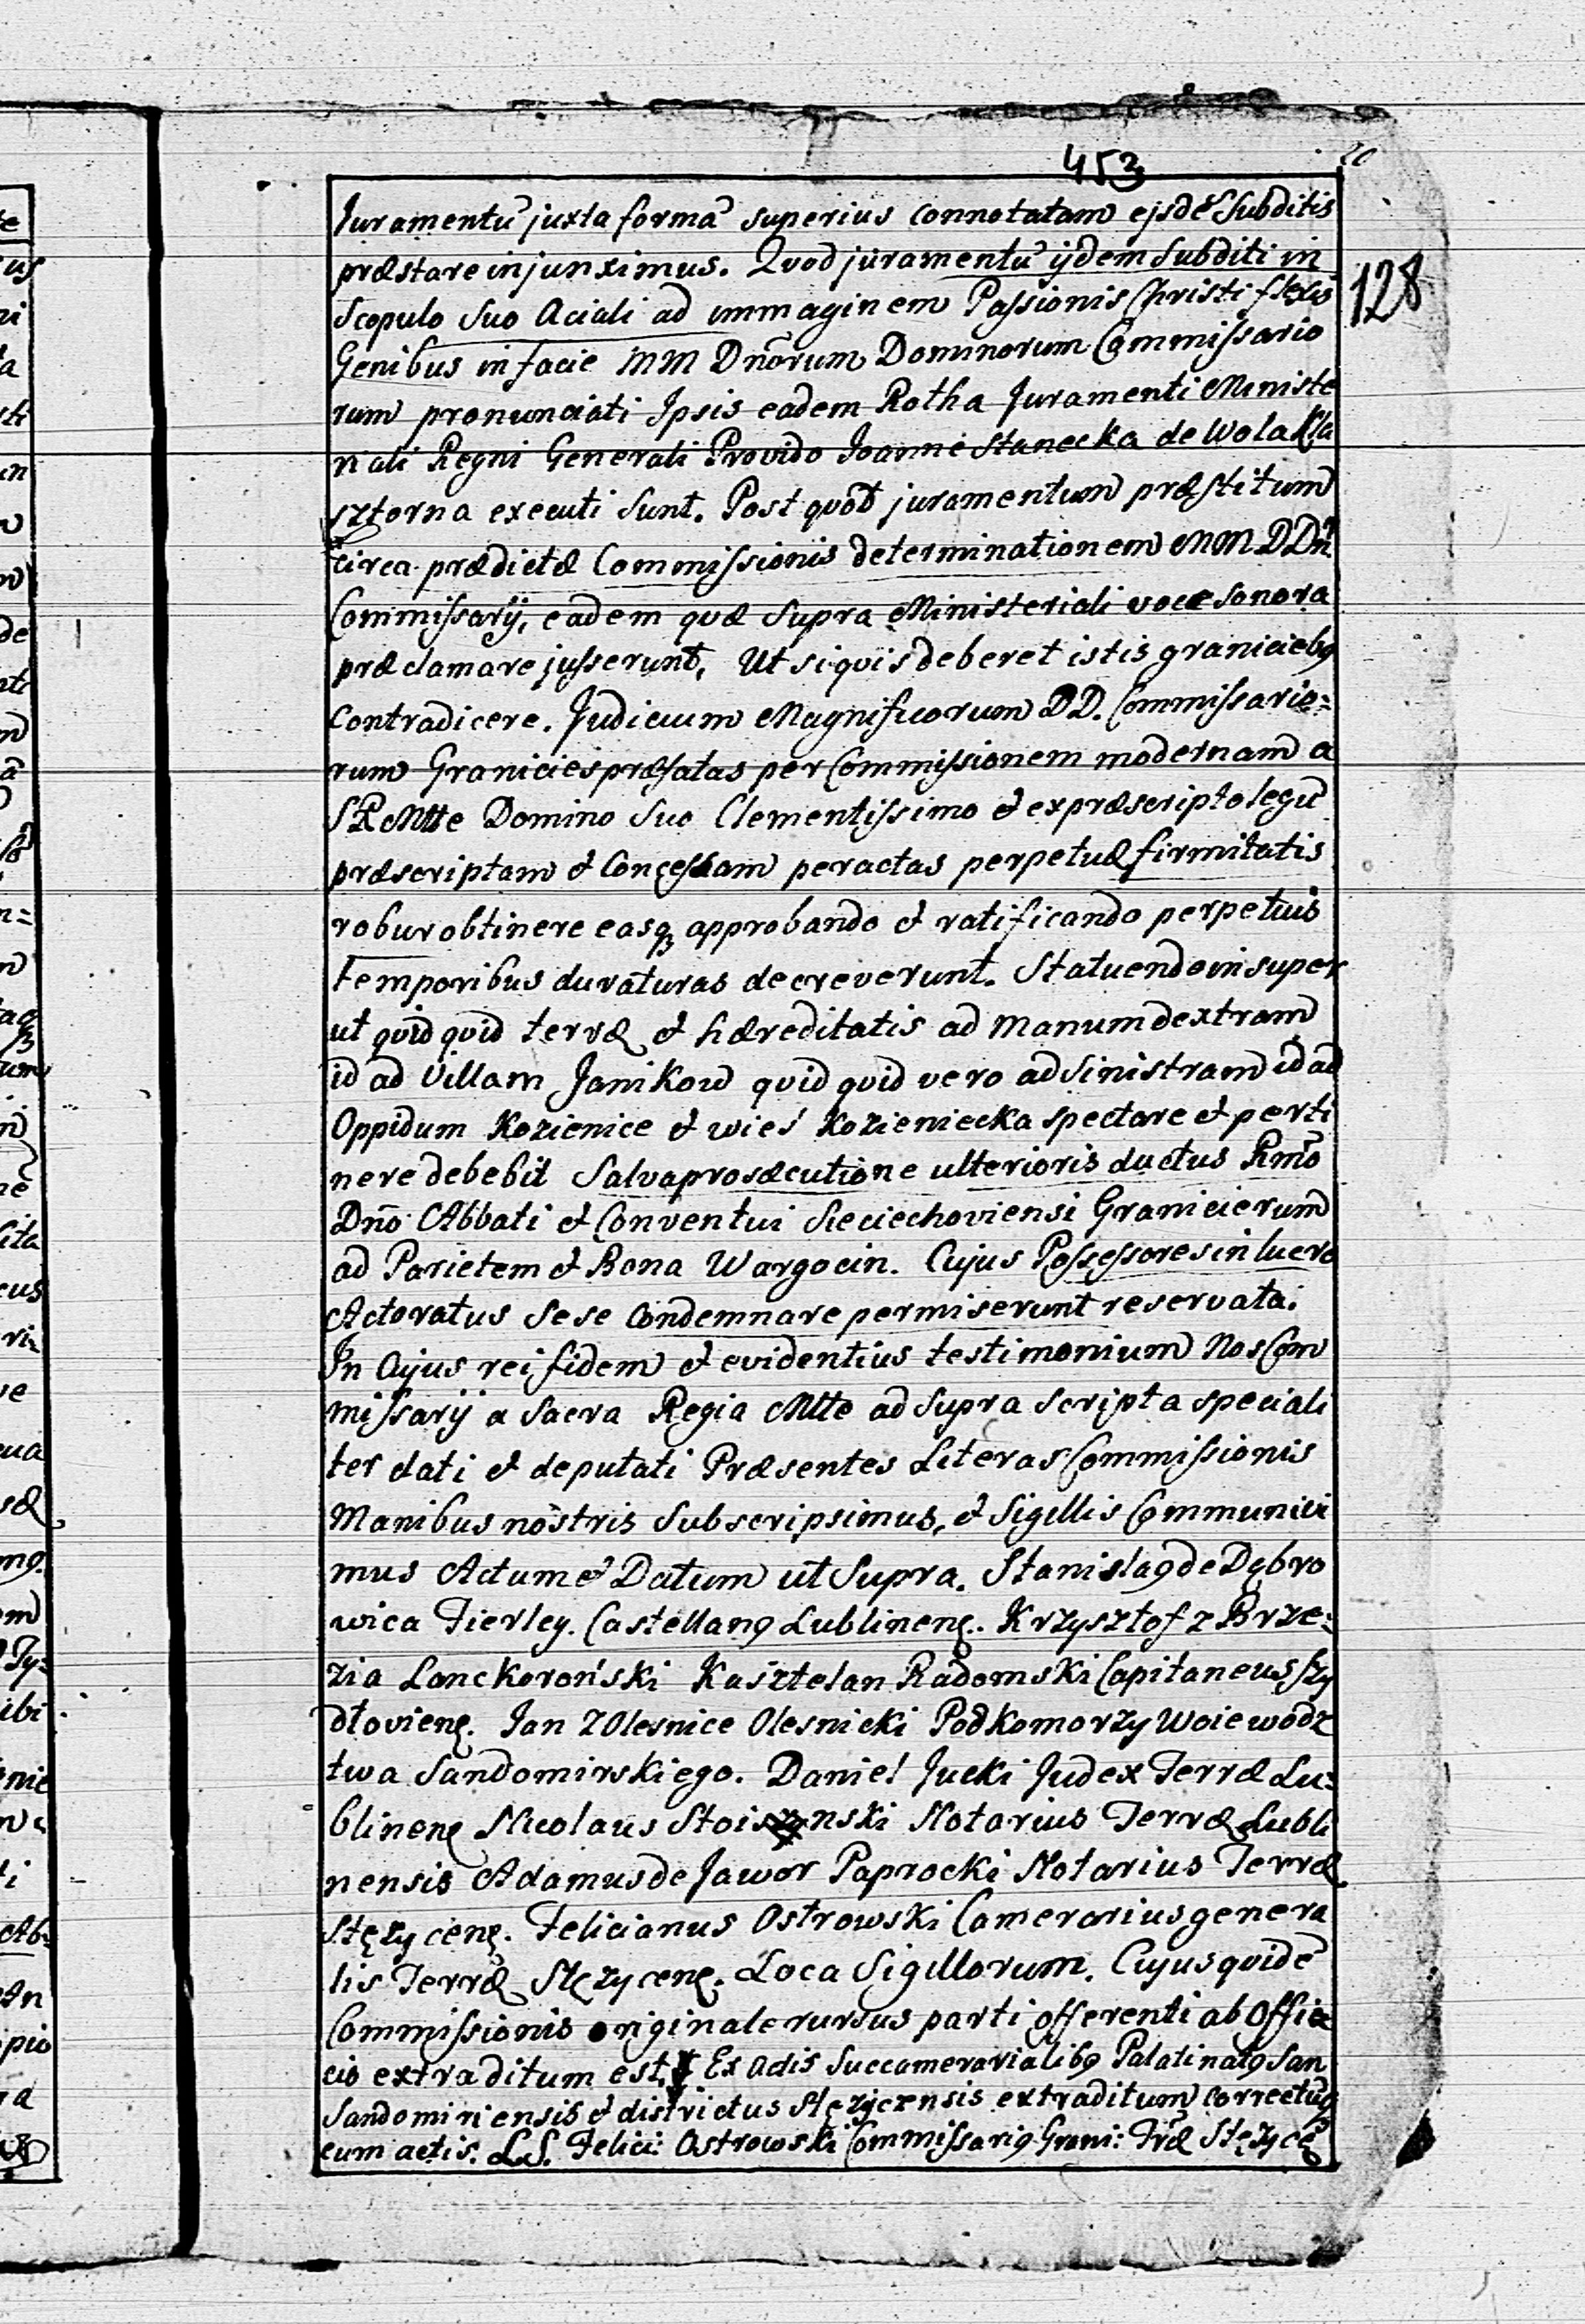 453
20
128
Juramentũ juxta formã superius connotatam ejsdẽ Subditis
præstare injunximus. Quod juramentũ ijdem Subditi in
Scopulo Suo Aciali ad immaginem Passionis Christi flexis
Genibus in facie MM Dnõrum Dominorum Commissario
rum pronunciati Ipsis eadem Rotha Juramenti Ministe
riali Regni Generali Provido Joanne Stanecka de Wola Kla
sztorna executi Sunt. Post quod juramentum præstitum
circa prædictæ Commissionis determinationem MM DDñ
Commissarij, eadem quæ Supra Ministeriali voce sonora
præclamare jusserunt, Ut siquis deberet istis graniciebꝰ
Contradicere. Judicium Magnificorum DD. Commissario=
rum Granicies præfatas per Commissionem modernam a
SRMtte Domino Suo Clementissimo & ex præscripto legũ
præscriptam & Concessam peractas perpetuæ firmitatis
robur obtinere easq̃ approbando & ratificando perpetuis
temporibus duraturas decreverunt. Statuendo insuper
ut quid quid terræ & hæreditatis ad manum dextram
id ad Villam Janikow quid quid vero ad Sinistram id ad
Oppidum Kozienice & wieś Kozieniecka spectare & perti
nere debebit Salva prosæcutione ulterioris ductus Rmõ
Dnõ Abbati & Conventui Sieciechoviensi Granicierum
ad Parietem & Bona Wargocin. Cujus Possessores in lucro
Actoratus Sese Condemnare permiserunt reservata.
In Cujus rei fidem & evidentius testimonium Nos Com
missarij a Sacra Regia Mtte ad Supra Scripta speciali
ter dati & deputati Præsentes Literas Commissionis
Manibus nostris Subscripsimus, & Sigillis Communivi
mus Actum & Datum ut Supra. Stanislaꝰ de Dąbro
wica Fierley. Castellanꝰ Lublinenę. Krzysztof z Brze=
zia Lanckoroński Kasztelan Radomski Capitaneus Szy
dłovienę. Jan z Olesnice Olesnicki Podkomorzy Woiewodz
twa Sandomirskiego. Daniel Jucki Judex Terræ Lu=
blinenę Nicolaus Stoisznski Notarius Terræ Lubli
nensis Adamus de Jawor Paprocki Notarius Terræ
Stężycenę. Felicianus Ostrowski Camerarius genera
lis Terræ Stężycenę. Loca Sigillorum. Cujus quidẽ
Commissionis originale rursus parti offerenti ab Offi
cio extraditum est. Ex Actis Succamerarialibꝰ Palatinatꝰ San
Sandomiriensis & districtus Stężycensis extraditum correctũ
cum actis. L.S. Felici: Ostrowski Commissariꝰ Grani: Træ Stężycę